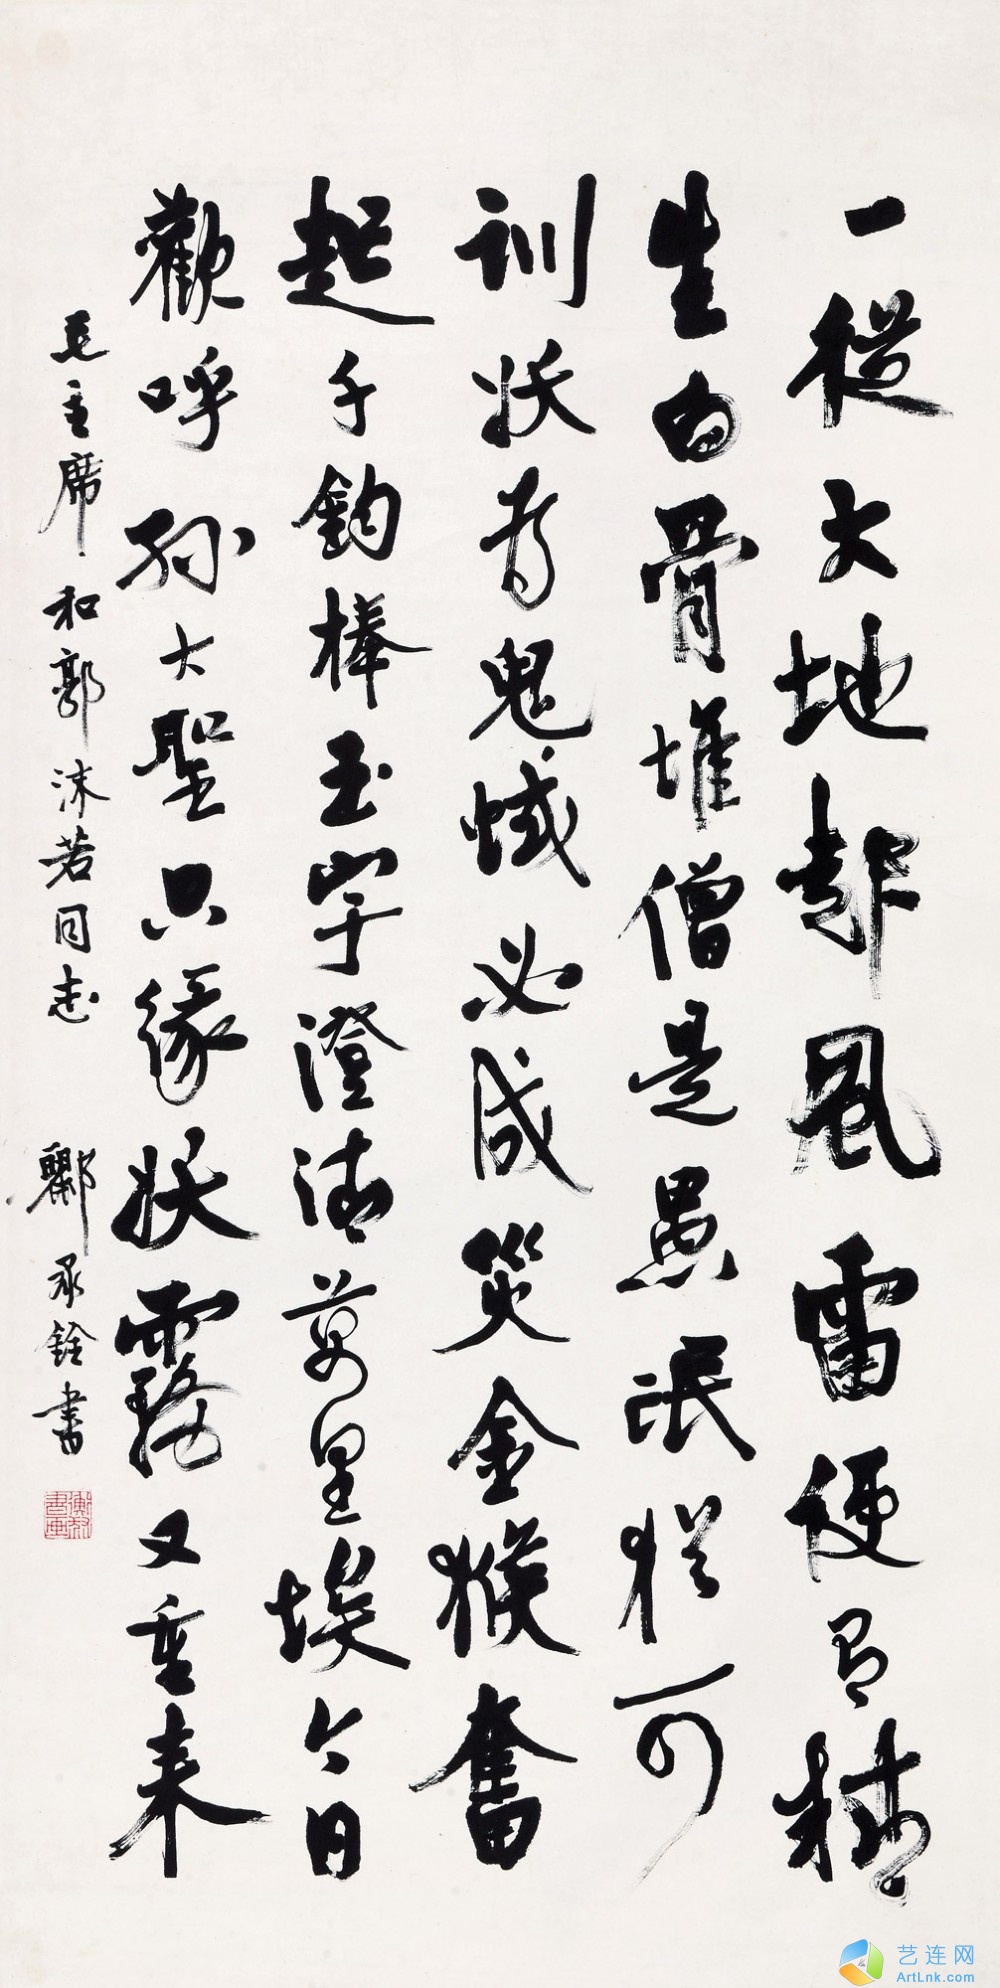 一從大地起風雷便有精
生白骨堆僧是愚氓猶可
訓妖為鬼蜮必成災金猴奮
起千鈞棒玉宇澄清萬里埃今日
歡呼孫大聖只緣妖霧又重來
毛主席和郭沫若同志 酈承銓書
艺连网
ArtLnk.com